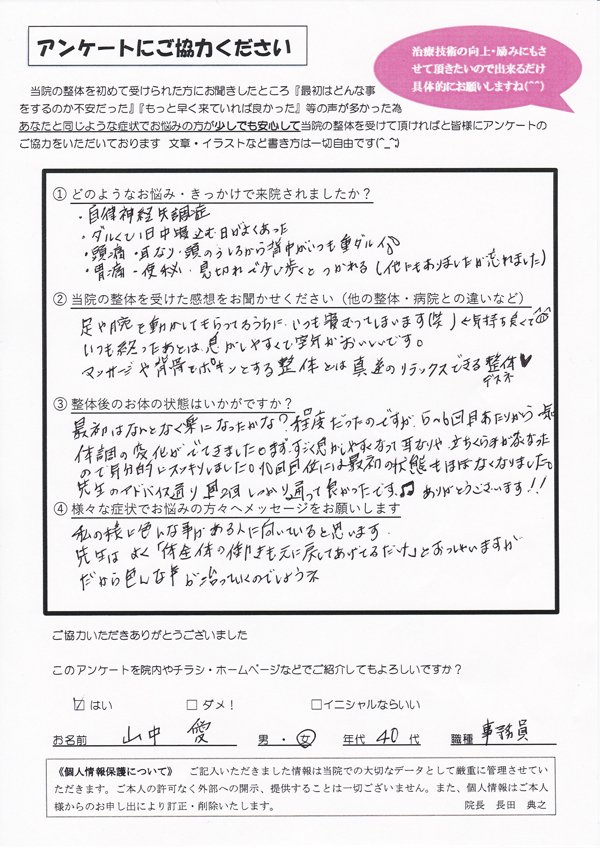 アンケートにご協力ください
治療技術の向上・励みにもさ
せて頂きたいので出来るだけ
具体的にお願いしますね(^^)
当院の整体を初めて受けられた方にお聞きしたところ『最初はどんな事
をするのか不安だった』『もっと早く来ていれば良かった』等の声が多かった為
あなたと同じような症状でお悩みの方が少しでも安心して当院の整体を受けて頂ければと皆様にアンケートの
ご協力をいただいております 文章・イラストなど書き方は一切自由です(^_^;)
① どのようなお悩み・きっかけで来院されましたか？
・自律神経失調症
・ダルくて1日中寝込む日がよくあった
・頭痛・耳なり・頭のうしろから背中がいつも重ダルイ
・胃痛・便秘・息切れで少し歩くとつかれる(他にもありましたが忘れました)
② 当院の整体を受けた感想をお聞かせください（他の整体・病院との違いなど）
足や腕を動かしてもらってるうちに、いつも寝むってしまいます(笑) ←気持ち良くて
いつも終ったあとは、息がしやすくて空気がおいしいです。
マッサージや背骨をポキンとする整体とは真逆のリラックスできる整体♥
デスネ
③ 整体後のお体の状態はいかがですか？
最初はなんとなく楽になったかな？程度だったのですが、5〜6回目あたりから
体調の変化がでてきました。まず、すごく息がしやすくなって耳なりや、立ちくらみがなくなった
ので自分的にスッキリしました。10回目位には最初の状態もほぼなくなりました。
先生のアドバイス通り週2回しっかり通って良かったです♫ ありがとうございます!!
④ 様々な症状でお悩みの方々へメッセージをお願いします
私の様に色んな事がある人に向いていると思います。
先生はよく「体全体の働きを元に戻してあげてるだけ」とおっしゃいますが
だから色んな事が治っていくのでしょうネ
ご協力いただきありがとうございました
このアンケートを院内やチラシ・ホームページなどでご紹介してもよろしいですか？
☑ はい □ ダメ！ □イニシャルならいい
お名前 山中 愛 男・女 年代 40 代 職種 事務員
《個人情報保護について》 ご記入いただきました情報は当院での大切なデータとして厳重に管理させてい
ただきます。ご本人の許可なく外部への開示、提供することは一切ございません。また、個人情報はご本人
様からのお申し出により訂正・削除いたします。 院長 長田 典之